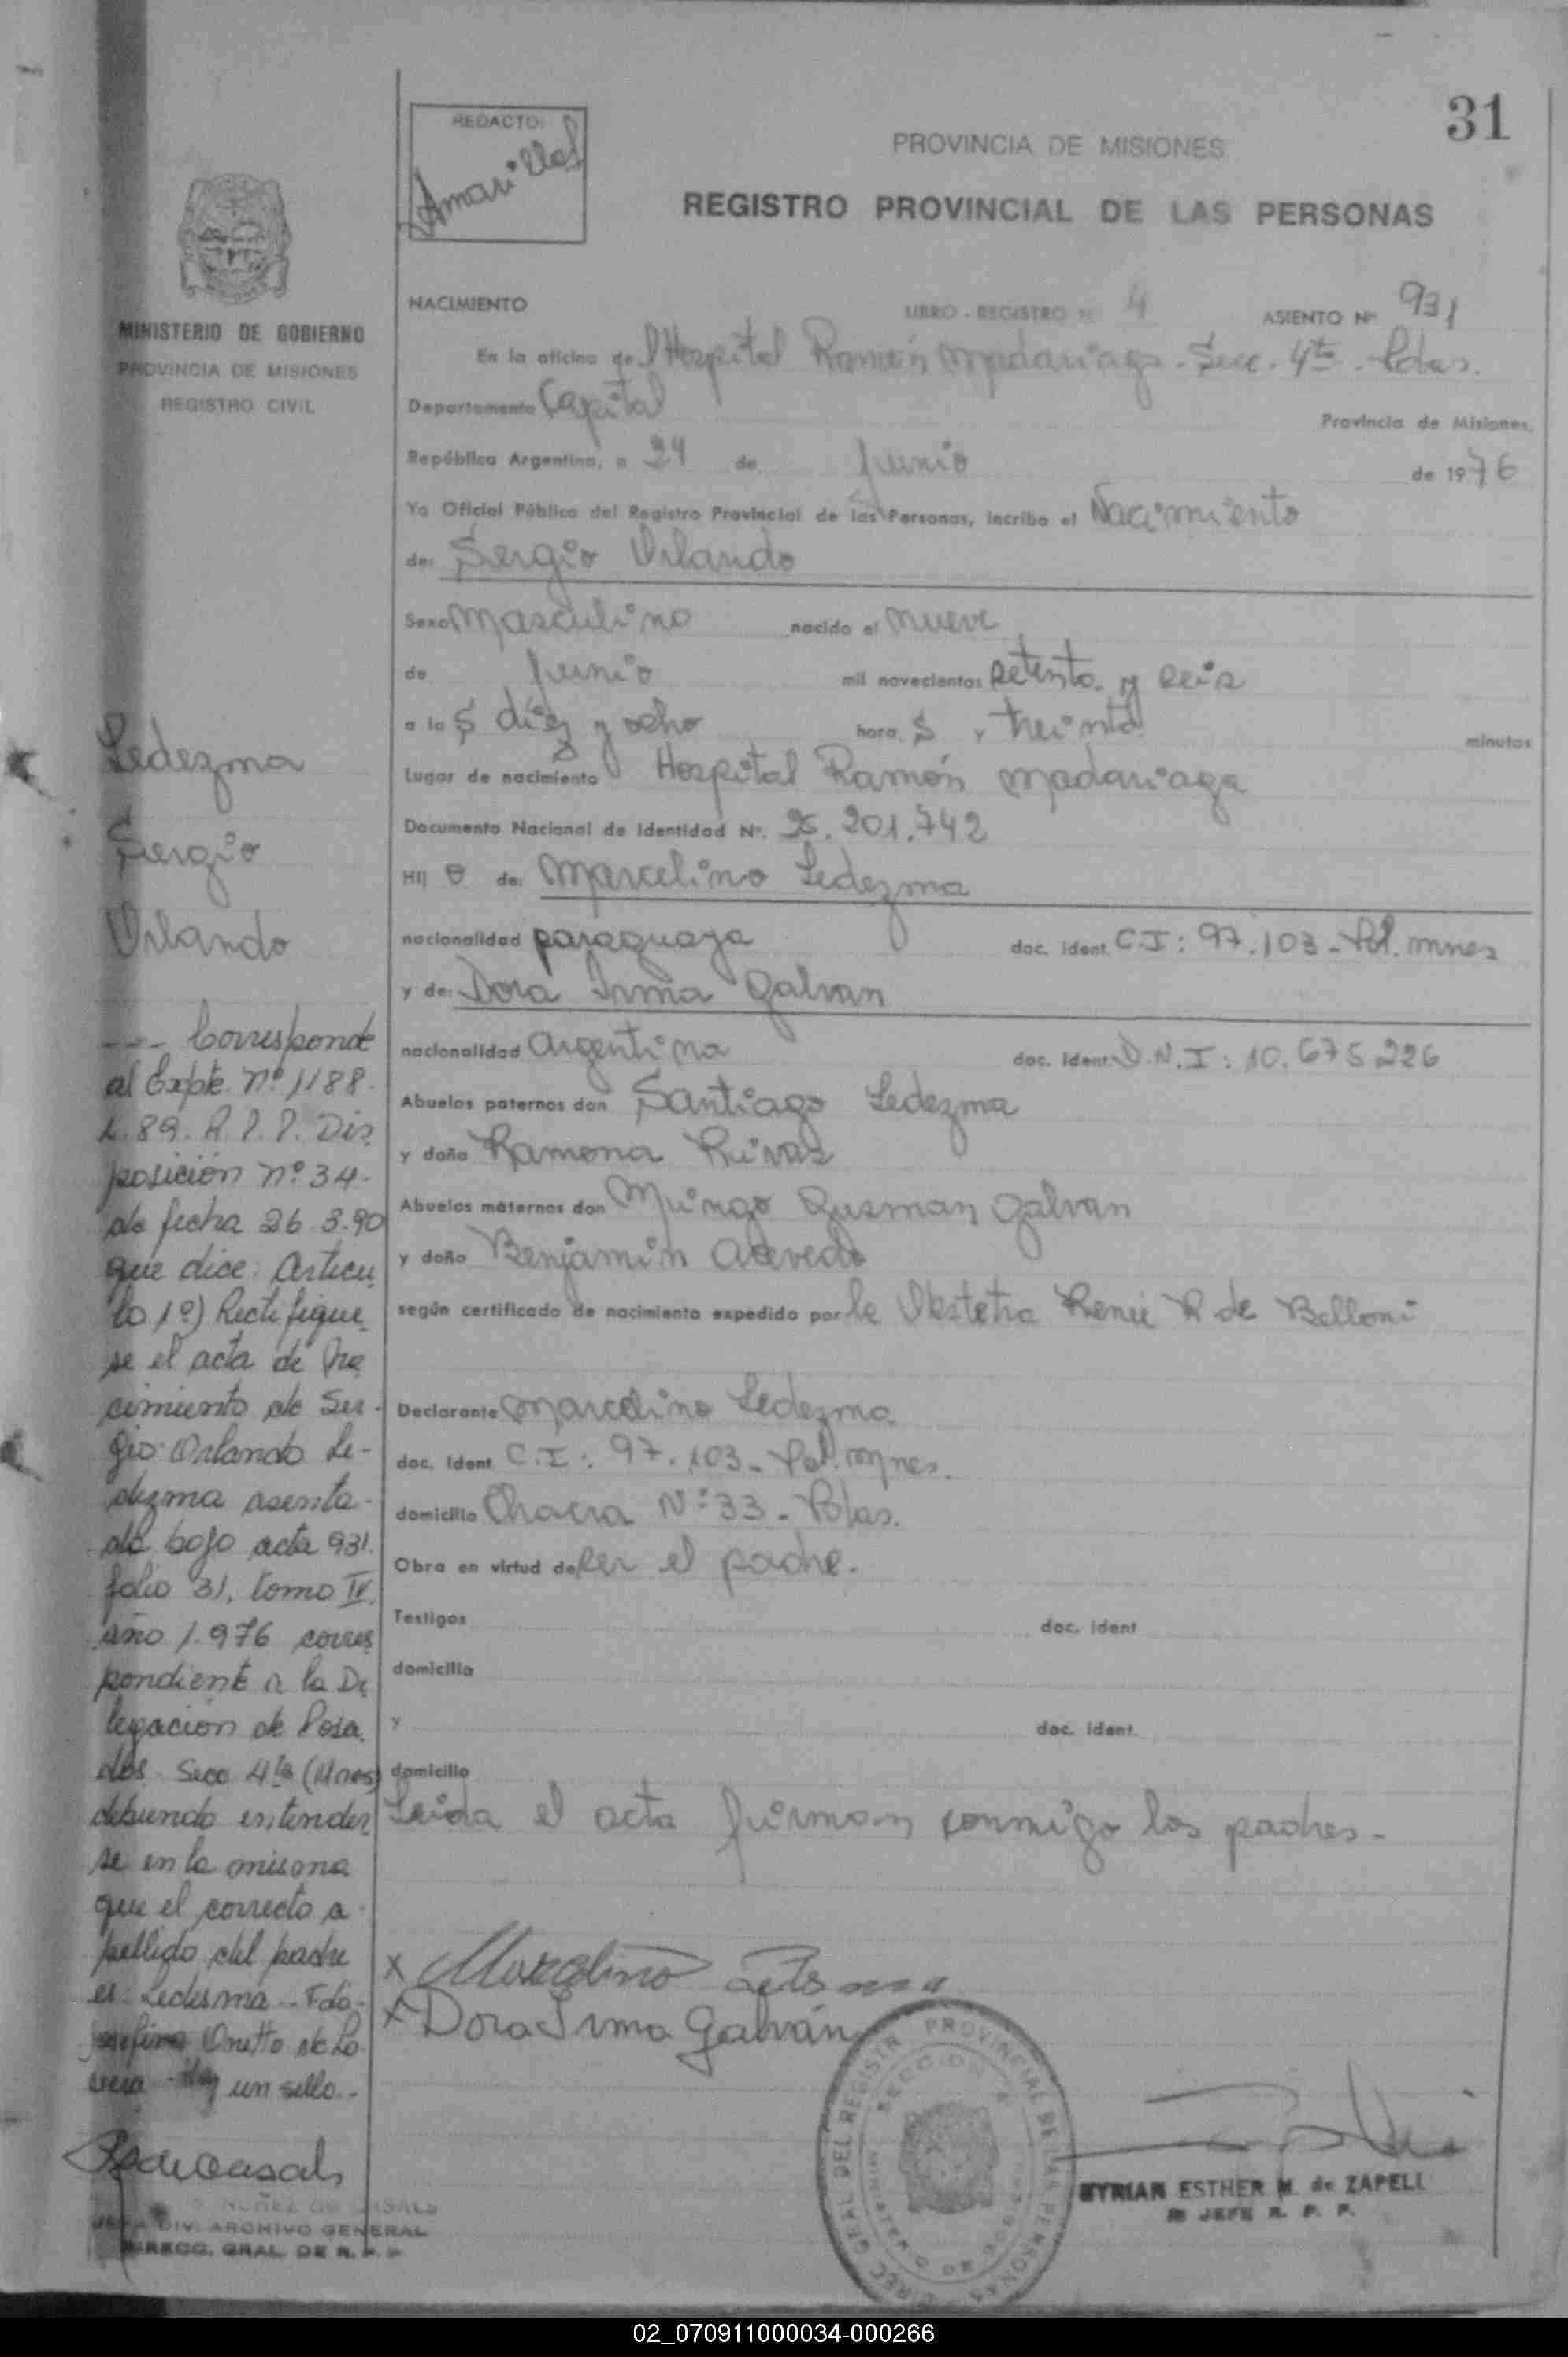 31
REDACTO:
Amarilla
PROVINCIA DE MISIONES
REGISTRO PROVINCIAL DE LAS PERSONAS
MINISTERIO DE GOBIERNO
PROVINCIA DE MISIONES
REGISTRO CIVIL
NACIMIENTO LIBRO - REGISTRO Nº 4 ASIENTO Nº 931
En la oficina del Hospital Ramón Madariaga - Secc. 4ta - Pdas.
Departamento Capital Provincia de Misiones,
República Argentina, a 24 de Junio de 1976
Yo Oficial Público del Registro Provincial de las Personas, incribo el Nacimiento
de: Sergio Orlando
Sexo Masculino nacido el nueve
de Junio mil novecientos setenta y seis
a las diez y ocho horas y treinta minutos
Lugar de nacimiento Hospital Ramón Madariaga
Documento Nacional de Identidad Nº. 25.201.742
Hijo de: Marcelino Ledezma
nacionalidad paraguaya doc. ident. C.I: 97.103 - Pol. Mnes
y de: Dora Irma Galvan
nacionalidad Argentina doc. ident. D.N.I: 10.675226
Abuelos paternos don Santiago Ledezma
y doña Ramona Rivas
Abuelos maternos don Gusman Galvan
y doña Benjamin Acevedo
según certificado de nacimiento expedido por la Obstetra Reneé R de Belloni
Declarante Marcelino Ledezma
doc. ident. C.I: 97.103 - Pol. Mnes.
domicilio Chacra Nº 33 - Pdas.
Obra en virtud de ser el padre.
Testigos doc. ident
domicilio
y doc. ident.
domicilio
Leida el acta firman conmigo los padres -
x Marcelino
x Dora Irma Galván
MYRIAN ESTHER M. de ZAPELLI
JEFE R. P. P.
Ledezma
Sergio
Orlando
--- Corresponde
al Expte. nº 1188-
L.89. R.P.P. Dis
posición nº 34-
de fecha 26.3.90
que dice: Articu
lo 1º) Rectifique
se el acta de Na
cimiento de Ser-
gio Orlando Le-
dezma asenta-
da bajo acta 931.
folio 31, tomo IV.
año 1.976 corres
pondiente a la De
legación de Posa
das Secc 4ta (Mnes)
debiendo entender
se en la misma
que el correcto a
pellido del padre
es: Ledesma - Fdo.
Josefina Onetto de Lo
vera - Hay un sello.-
NUÑEZ DE CASALS
JEFA DIV. ARCHIVO GENERAL
DIRECC. GRAL. DE R. P. P.
DIREC. GRAL DEL REGISTR PROVINCIAL DE LAS PERSONAS
SECCION 4
02_070911000034-000266